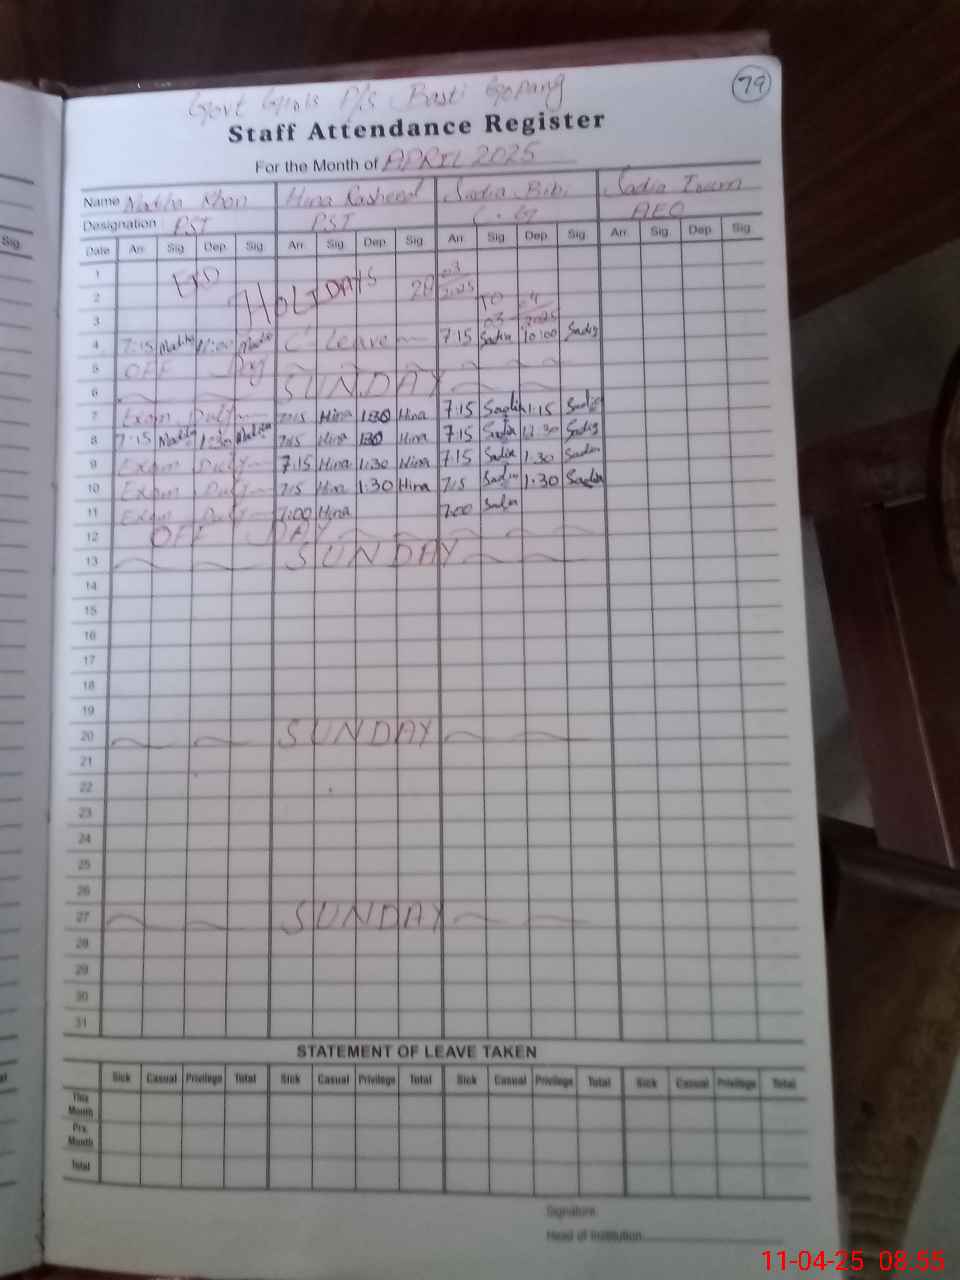 79
Govt Girls P/S Basti Gopang
Staff Attendance Register
For the Month of APRIL 2025
Name Khan Hina Rasheed Sadia Bibi Sadia
Designation PST PST AEO
Date Arr. Sig. Dep. Sig. Arr. Sig. Dep. Sig. Arr. Sig. Dep. Sig. Arr. Sig. Dep. Sig.
1
2 HOLIDAYS 28 03 2025 TO
3 03 04 2025
4 7:15 C Leave 7:15 Sadia 10:00 Sadia
5 OFF Day
6 SUNDAY
7 Exam Duty 7:15 Hina 1:30 Hina 7:15 Sadia 1:15 Sadia
8 7:15 7:15 Hina 1:30 Hina 7:15 Sadia 12:30 Sadia
9 Exam Duty 7:15 Hina 1:30 Hina 7:15 Sadia 1:30 Sadia
10 Exam Duty 7:15 Hina 1:30 Hina 7:15 Sadia 1:30 Sadia
11 Exam Duty 7:00 Hina 7:00 Sadia
12 OFF DAY
13 SUNDAY
14
15
16
17
18
19
20 SUNDAY
21
22
23
24
25
26
27 SUNDAY
28
29
30
31
STATEMENT OF LEAVE TAKEN
Sick Casual Privilege Total Sick Casual Privilege Total Sick Casual Privilege Total Sick Casual Privilege Total
This Month
Prv. Month
Total
Signature
Head of Institution
11-04-25 08:55